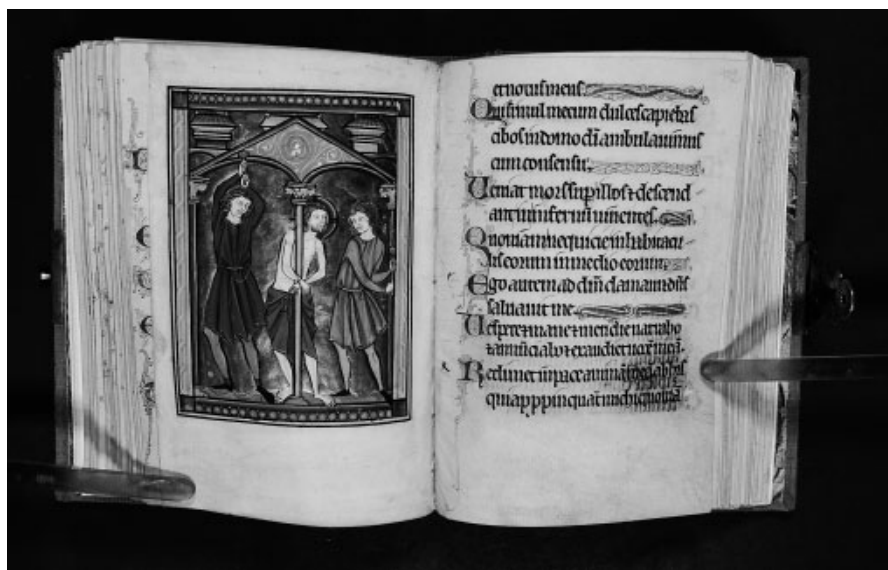 et notus meus.
Qui simul mecum dulces capiebas
cibos in domo dī ambulavimus
cum consensu.
Veniat mors sup illos ⁊ descend
ant in infernum viventes.
Quoniam nequicie in habitacu
lis eorum in medio eorum.
Ego autem ad dn̄m clamavi ⁊ dn̄s
salvavit me.
Vespere ⁊ mane ⁊ meridie narrabo
⁊ annūciabo ⁊ exaudiet vocē meā.
Redimet in pace animā meā ab his
qui appropinquāt michi quoniā